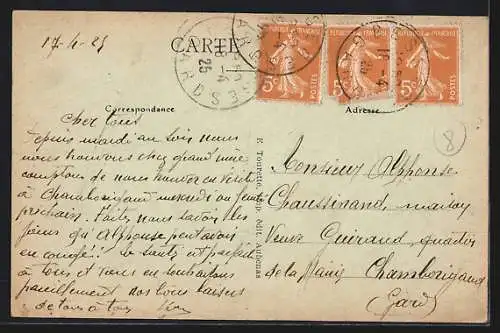 17-4-25
CARTE
RÉPUBLIQUE FRANÇAISE
5c POSTES
5c
5c POSTES
GARD
25
Correspondance
Adresse
Cher tous
depuis mardi au soir nous
nous trouvons chez grand'mère
comptons de nous trouver en visite
à Chamborigaud mercredi ou jeudi
prochain. Faites nous savoir les
jours qu'Alphonse
en congé. La santé est parfaite
à tous et nous en souhaitons
pareillement
de tous à tous
E. Tourette, Imp. édit. Aubenas
8
Monsieur Alphonse
Chaussinand, maison
Veuve Guiraud, quartier
de la Mairie Chamborigaud
(Gard)